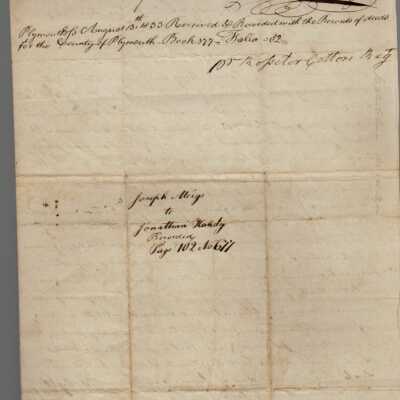 Plymouth ss August 15th 1833 Received & Recorded with the Records of deeds
for the County of Plymouth Book 177 - Folio 102.
pr Rossiter Cotton Reg
Joseph Meigs
to
Jonathan Handy
Recorded
Page 102 No 177